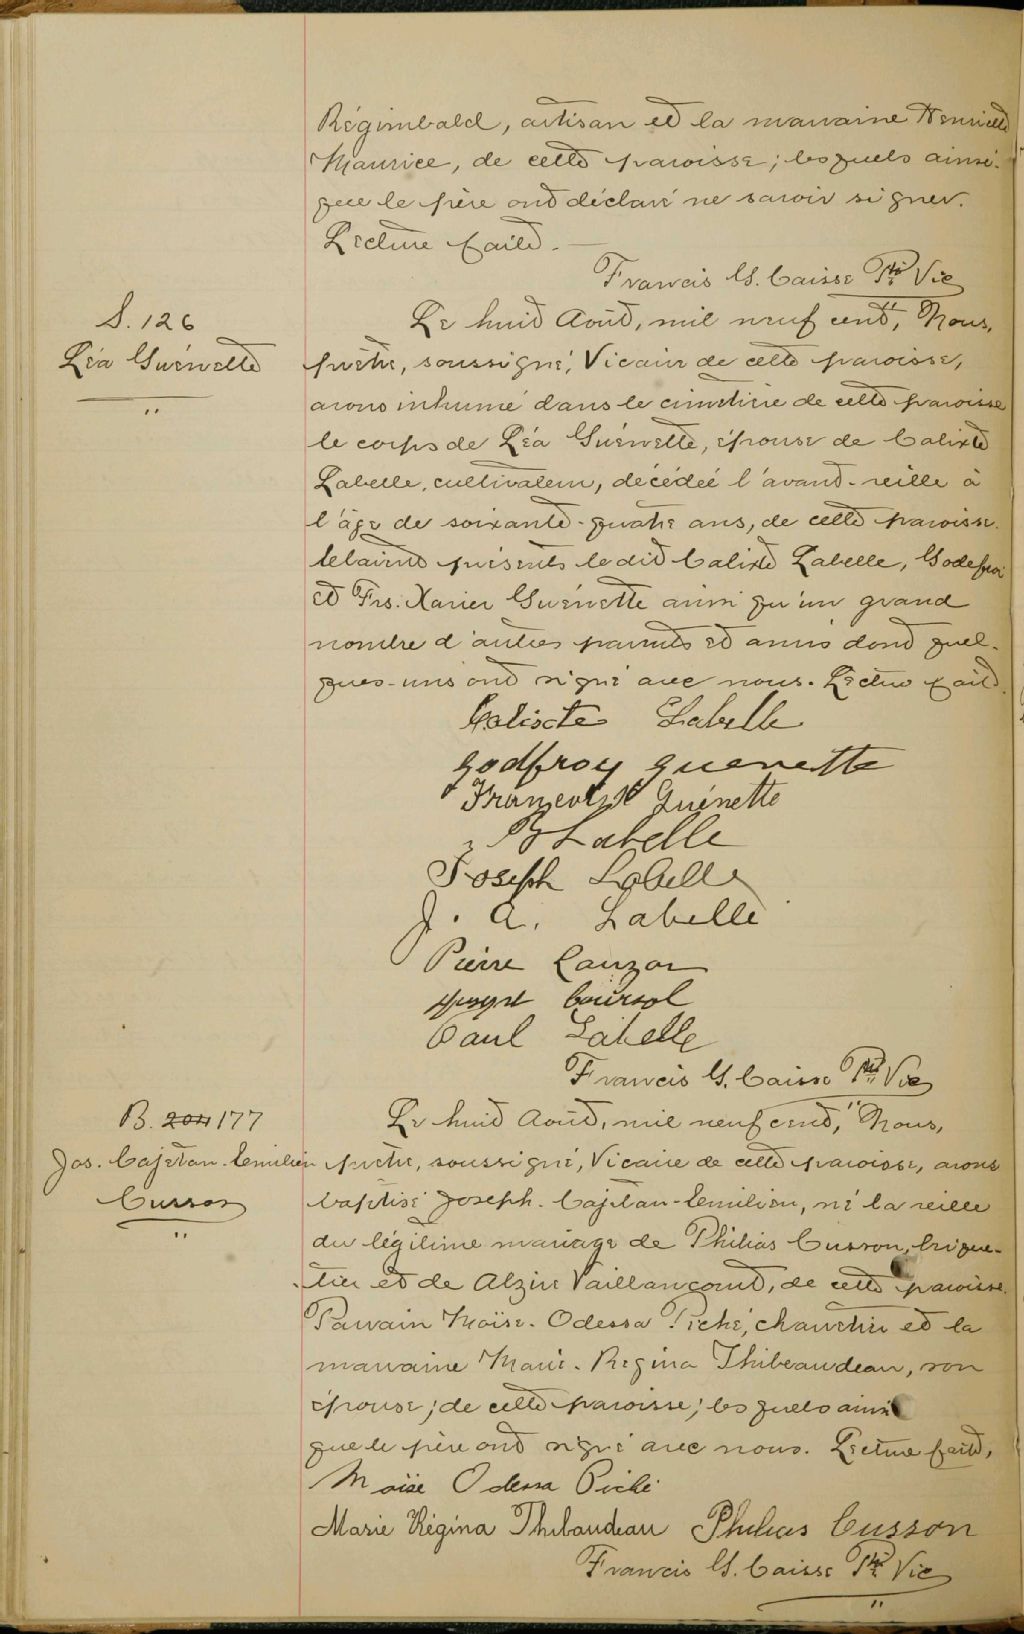 Régimbald, artisan et la marraine Henriette
Maurice, de cette paroisse; lesquels ainsi-
que le père ont déclaré ne savoir signer.
Lecture faite. —
Francis G. Caisse Ptre Vic
S. 126
Léa Guénette
Le huit Août, mil neuf cent, Nous,
prêtre, soussigné, Vicaire de cette paroisse,
avons inhumé dans le cimetière de cette paroisse
le corps de Léa Guénette, épouse de Calixte
Labelle, cultivateur, décédée l'avant-veille à
l'âge de soixante-quatre ans, de cette paroisse.
Etaient présents ledit Calixte Labelle, Godefroi
et Frs. Xavier Guénette ainsi qu'un grand
nombre d'autres parents et amis dont quel-
ques-uns ont signé avec nous. Lecture faite.
Calixte Labelle
Godfroy Guenette
François X Guénette
B Labelle
Joseph Labelle
J. A. Labelle
Pierre Lauzon
Coursol
Paul Labelle
Francis G. Caisse Ptre Vic
B. 204 177
Jos. Cajetan-Emilien
Cusson
Le huit Août, mil neuf cent, Nous,
prêtre, soussigné, Vicaire de cette paroisse, avons
baptisé Joseph-Cajetan-Emilien, né la veille
du légitime mariage de Philias Cusson, brique-
tier et de Alzire Vaillancourt, de cette paroisse.
Parrain Moïse-Odessa Piché, charretier et la
marraine Marie-Regina Thibeaudeau, son
épouse; de cette paroisse; lesquels ainsi
que le père ont signé avec nous. Lecture faite,
Moïse Odessa Piché
Marie Régina Thibaudeau Philias Cusson
Francis G. Caisse Ptre Vic